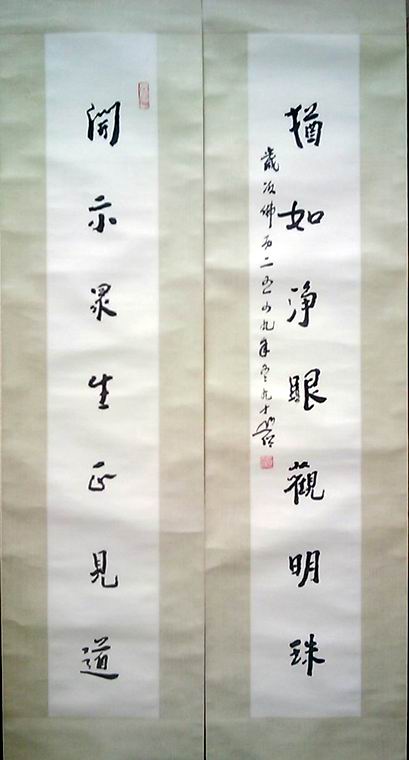 開示眾生正見道
猶如淨眼觀明珠
歲次佛曆二五九年九十